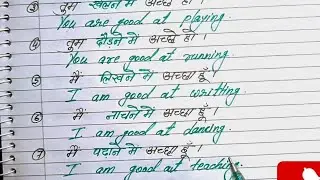 ③ तुम खेलने में अच्छे हो।
You are good at playing.
④ तुम दौड़ने में अच्छे हो।
You are good at running.
⑤ मैं लिखने में अच्छा हूँ।
I am good at writting.
⑥ मैं नाचने में अच्छा हूँ।
I am good at dancing.
⑦ मैं पढाने में अच्छा हूँ।
I am good at teaching.